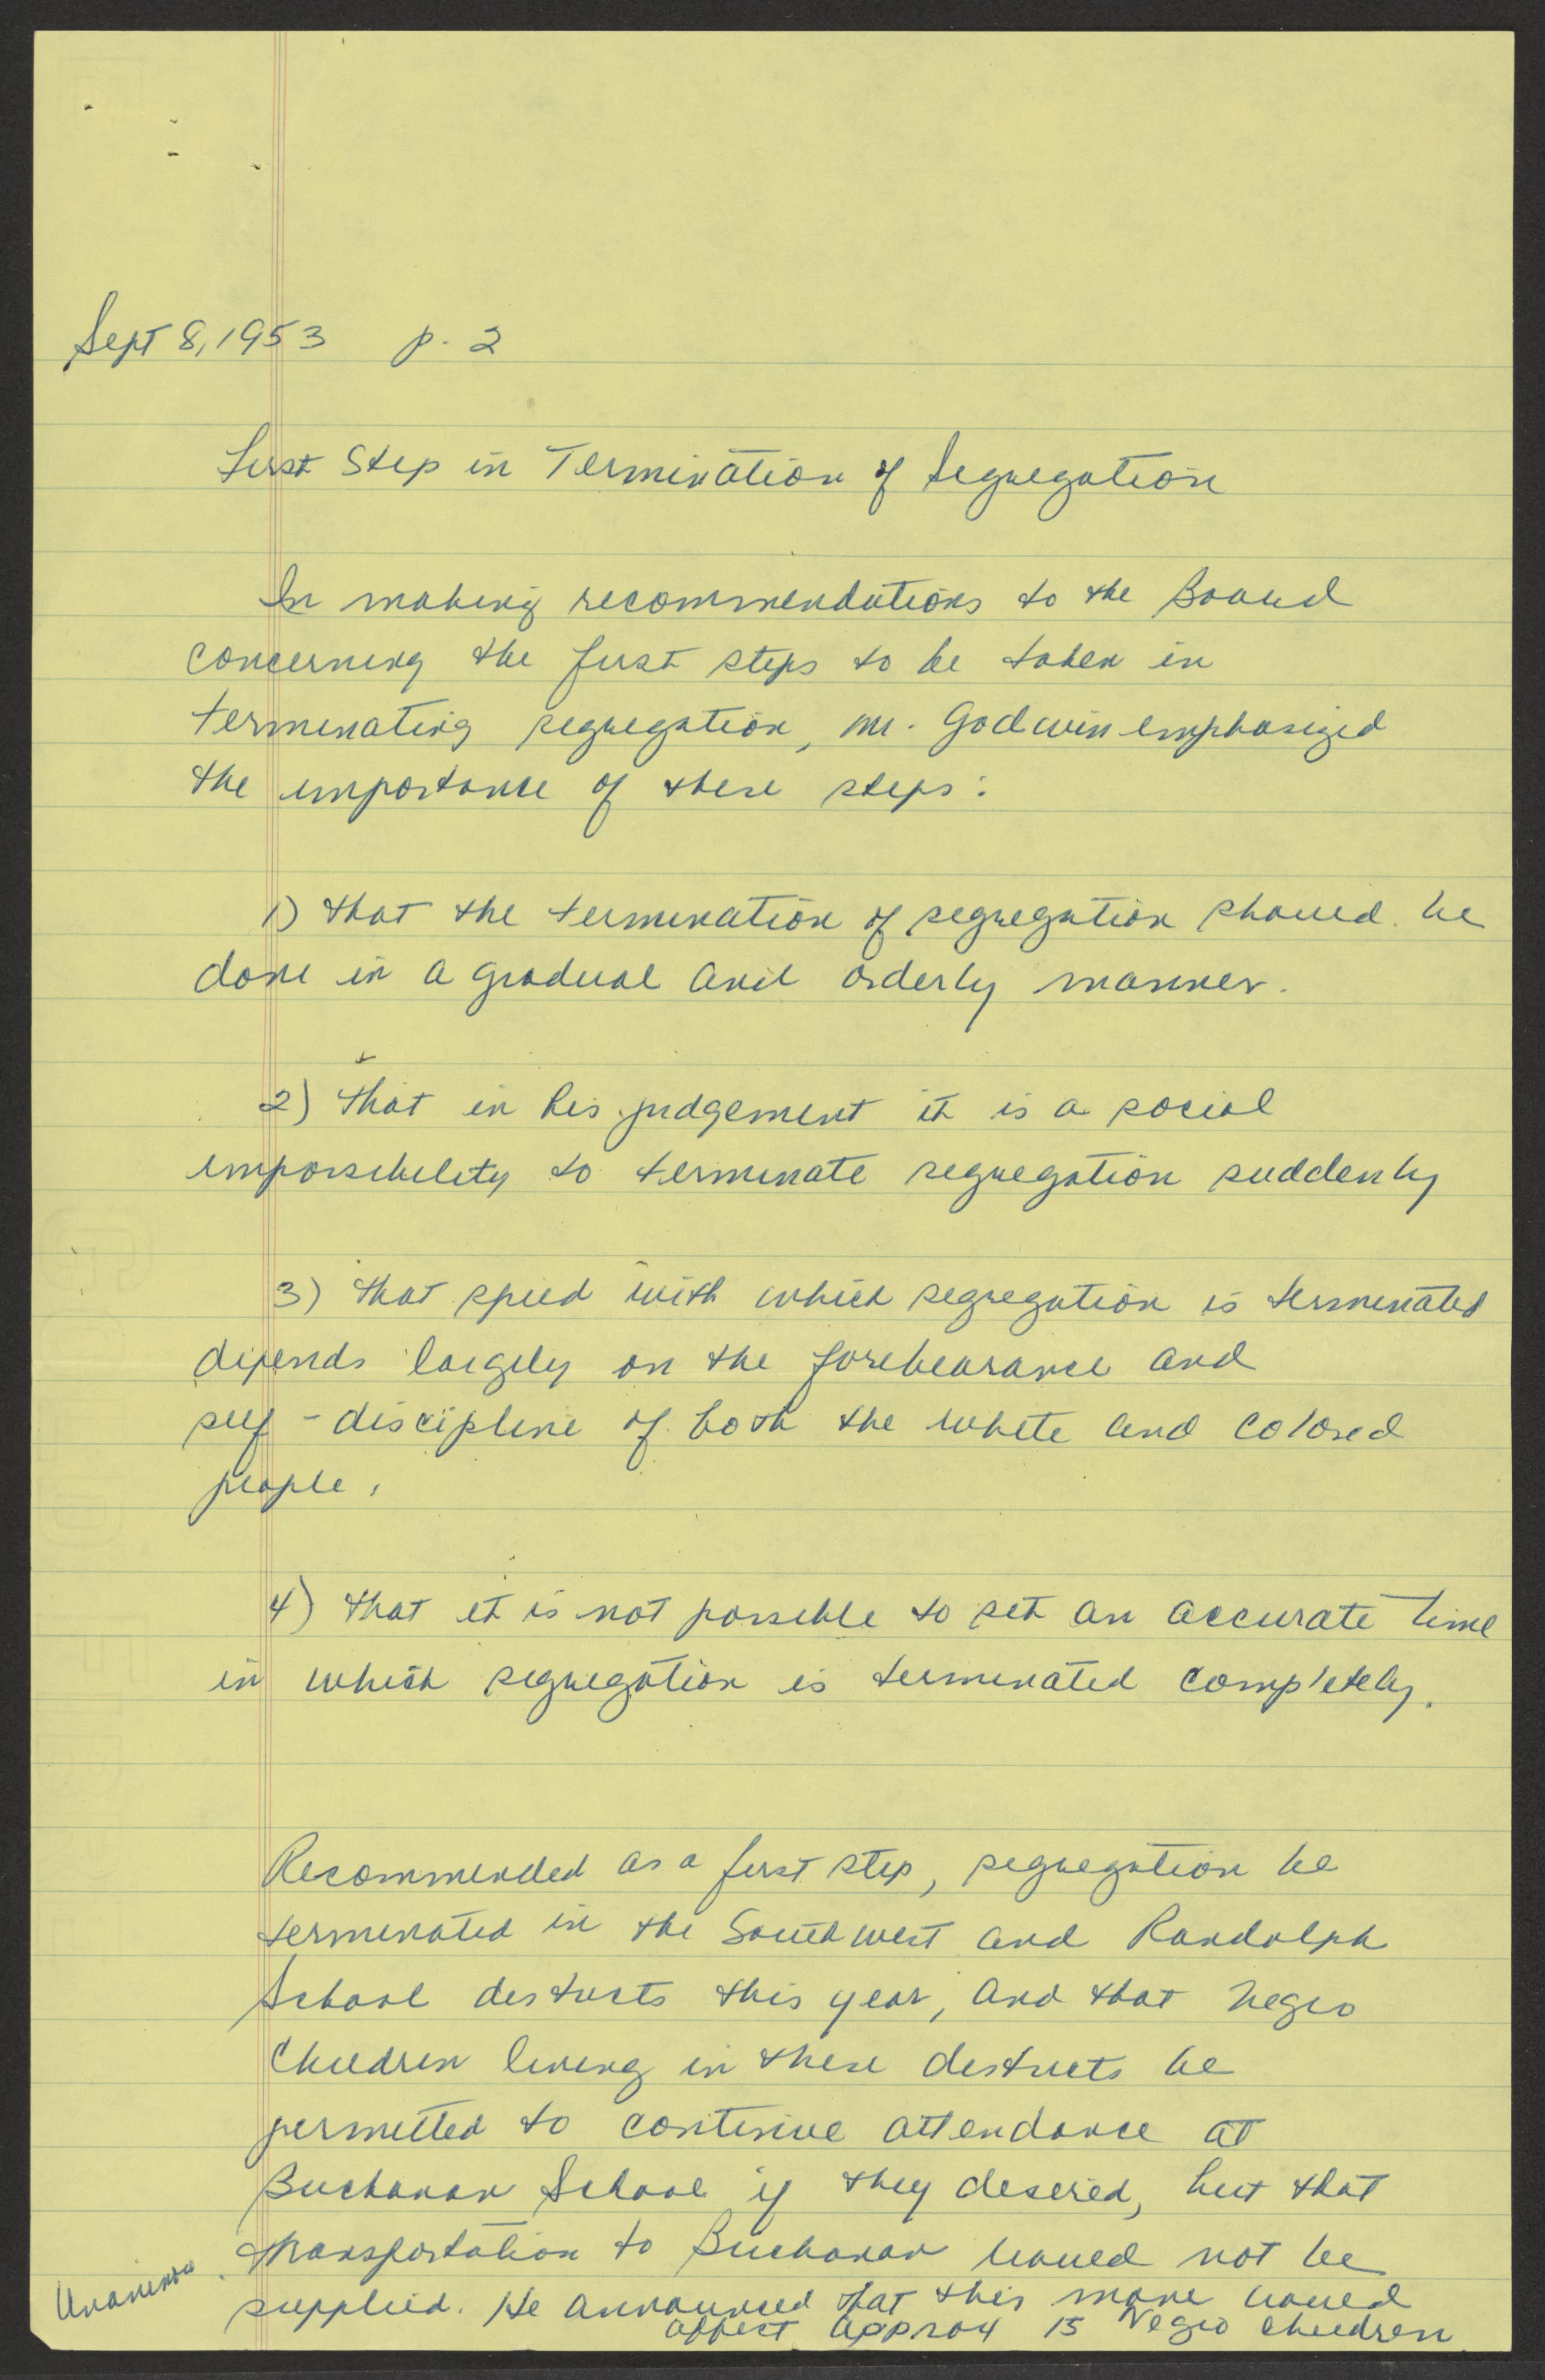 Sept 8, 1953 p. 2
First Step in Termination of Segregation
In making recommendations to the Board
concerning the first steps to be taken in
terminating segregation, Mr. Godwin emphasized
the importance of these steps:
1) that the termination of segregation should be
done in a gradual and orderly manner.
2) that in his judgement it is a social
impossibility to terminate segregation suddenly
3) that speed with which segregation is terminated
depends largely on the forebearance and
self-discipline of both the white and colored
people.
4) that it is not possible to set an accurate time
in which segregation is terminated completely.
Recommended as a first step, segregation be
terminated in the Southwest and Randolph
School districts this year, and that Negro
Children living in these districts be
permitted to continue attendance at
Buchanan School if they desired, but that
transportation to Buchanan would not be
Unanimous
supplied. He announced that this move would
affect approx 15 Negro children.